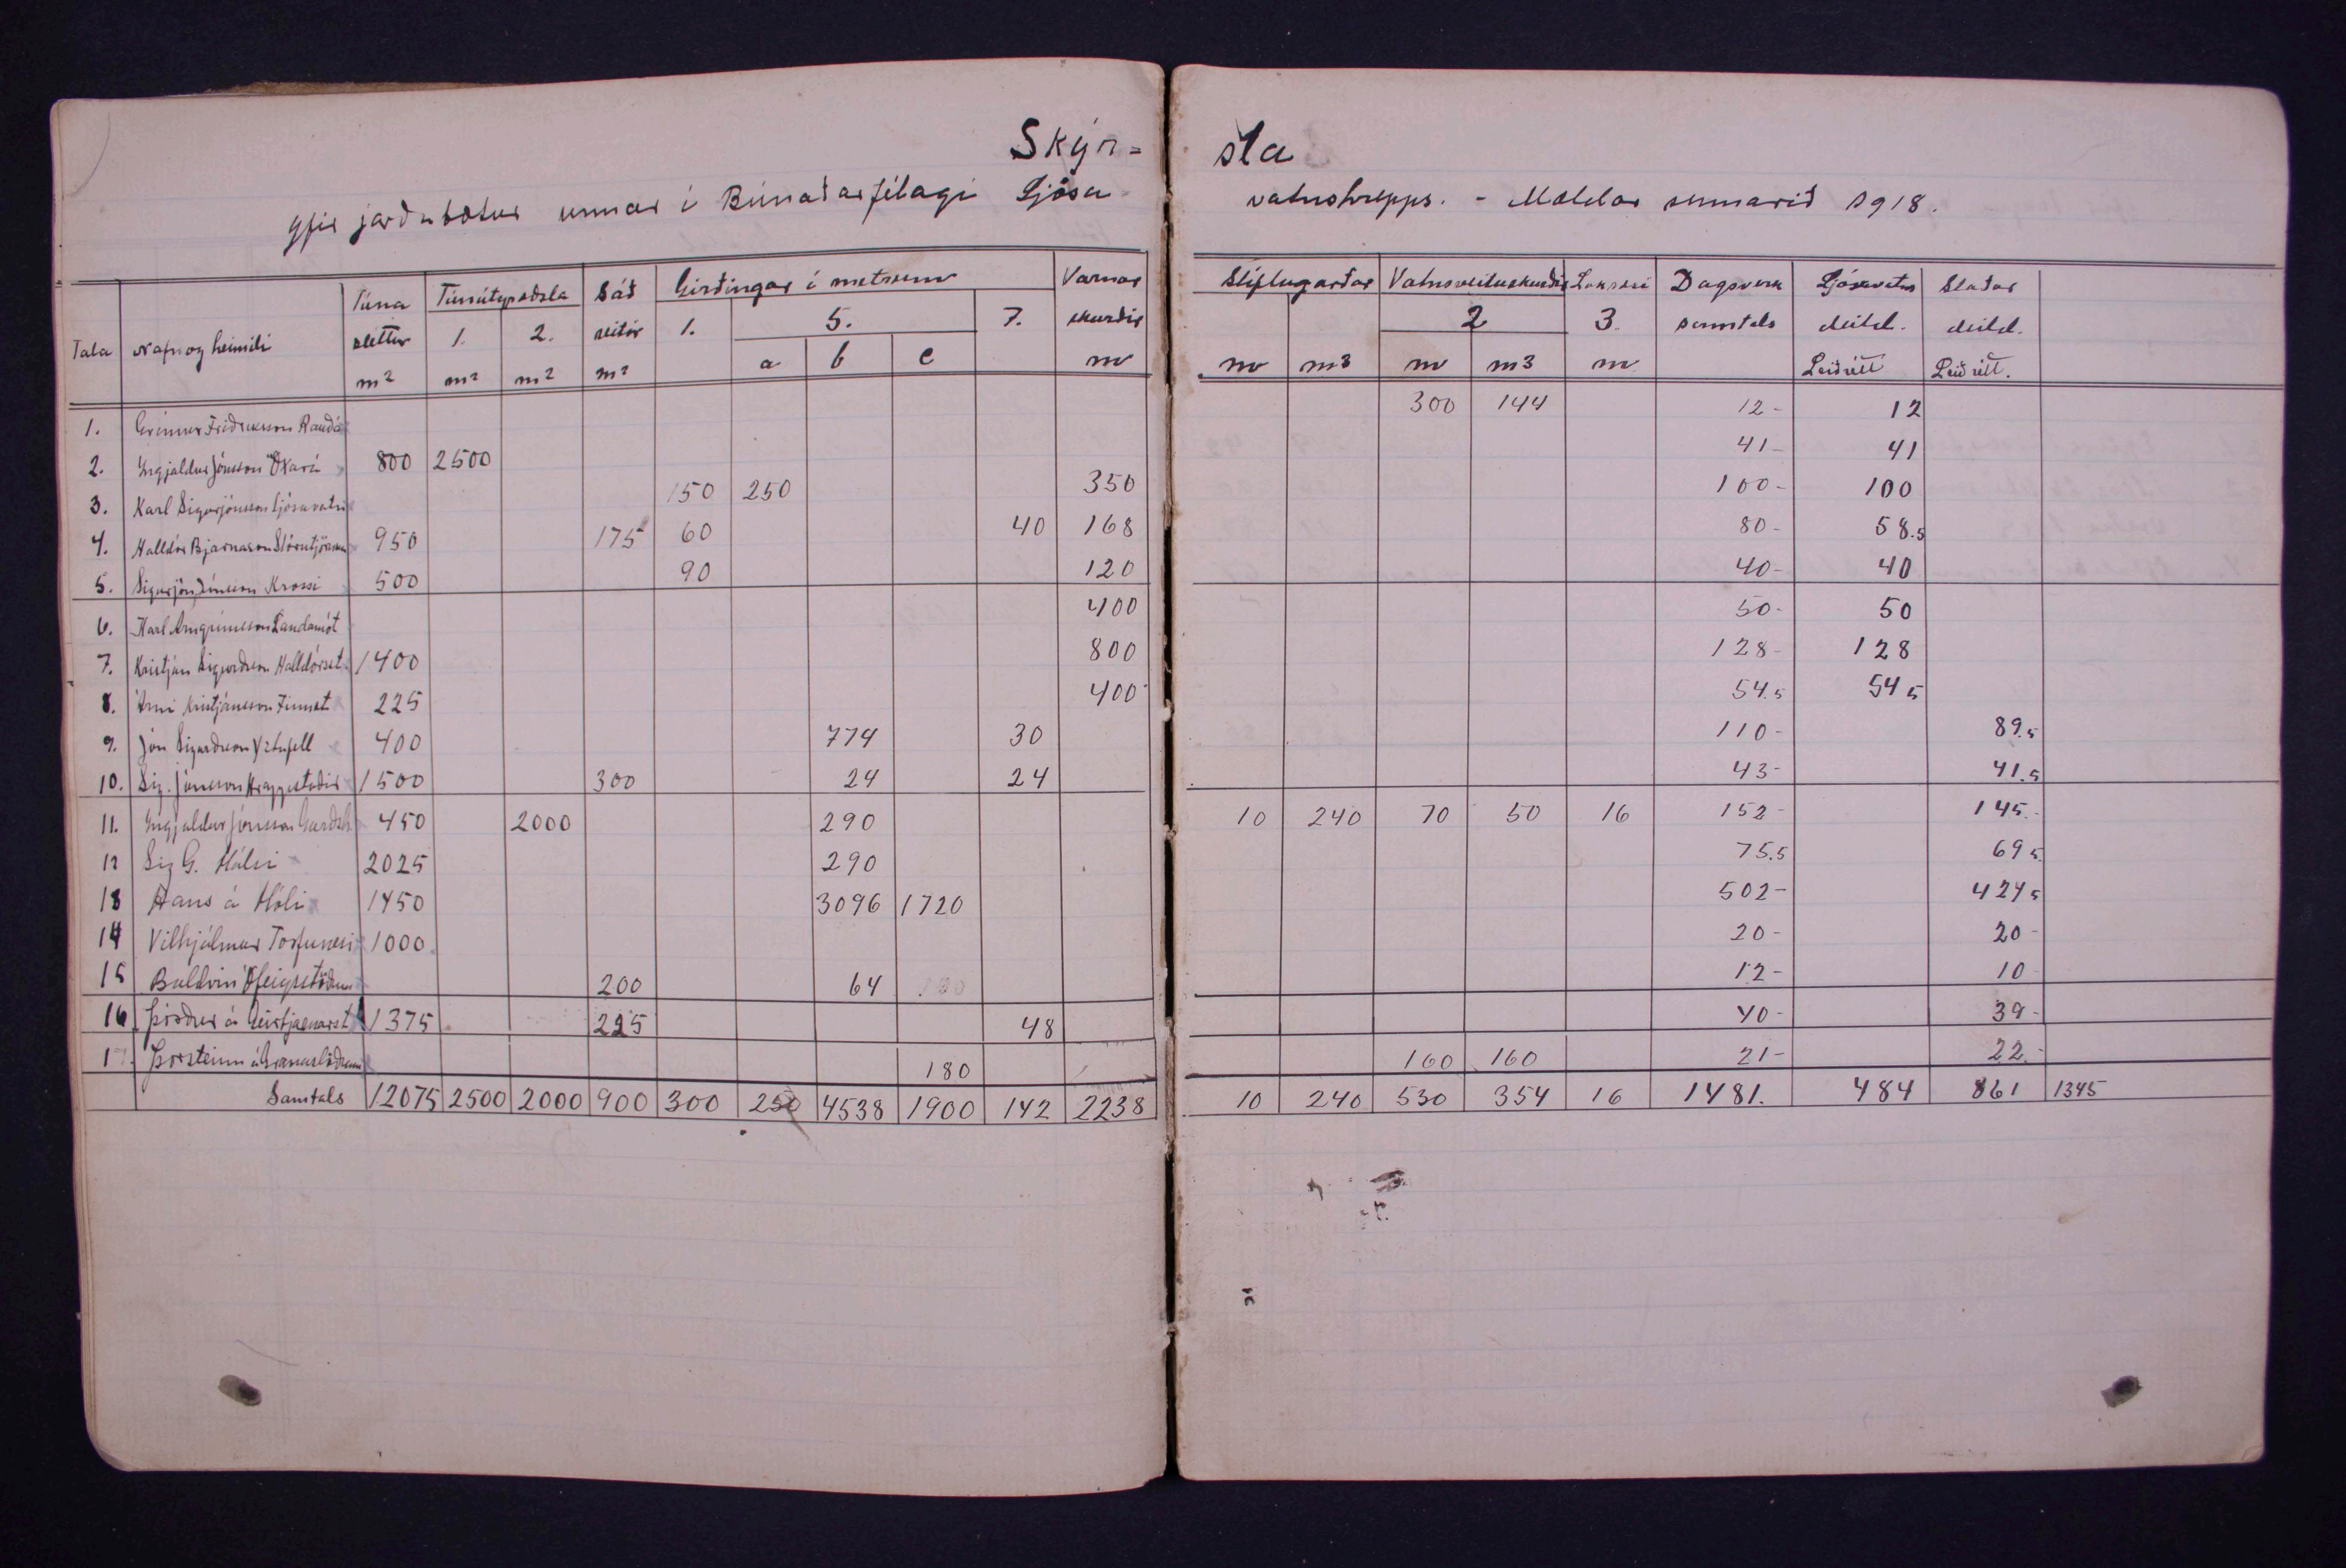 Skýr= sla
yfir jarðabætur unnar í Búnaðarfélagi Ljósa vatnshrepps. - Mældar sumarið 1918.
Tala Nafn og heimili Túna sléttur m² Túnútgræðsla 1. m² 2. m² Sáð reitir m² Girðingar í metrum 1. 5. a b c 7. Varnar skurðir m Stíflugarðar m m3 Vatnsveituskurðir 2 m m3 Lokræsi 3. m Dagsverk samtals Ljósavatns deild. Leiðrétt Staðar deild. Leiðrétt.
1. Grímur Friðriksson Rauðá 300 144 12- 12
2. Ingjaldur Jónsson Öxará 800 2500 41- 41
3. Karl Sigurjónsson Ljósavatni 150 250 350 100- 100
4. Halldór Bjarnason Stórutjörnum 950 175 60 40 168 80- 58.5
5. Sigurjón Krossi 500 90 120 40- 40
6. Karl Arngrímsson Landamót 400 50- 50
7. Kristján Sigurðsson Halldórsst. 1400 800 128- 128
8. Árni Kristjánsson Finnst. 225 400 54.5 54 5
9. Jón Sigurðsson Yztafell 400 774 30 110- 89.5
10. Sig. Jónsson Hrappstaðir 1500 300 24 24 43- 41.5
11. Ingjaldur Jónsson 450 2000 290 10 240 70 50 16 152- 145.-
12 Sig G. Hálsi 2025 290 75.5 69 5
13 Hans á Hóli 1450 3096 1720 502- 424 5
14 Vilhjálmur Torfunesi 1000 20- 20-
15 Baldvin Ófeigsstöðum 200 64 12- 10-
16 Þórður á 1375 225 48 40- 39-
17. Þorsteinn á 180 160 160 21- 22.-
Samtals 12075 2500 2000 900 300 250 4538 1900 142 2238 10 240 530 354 16 1481. 484 861 1345